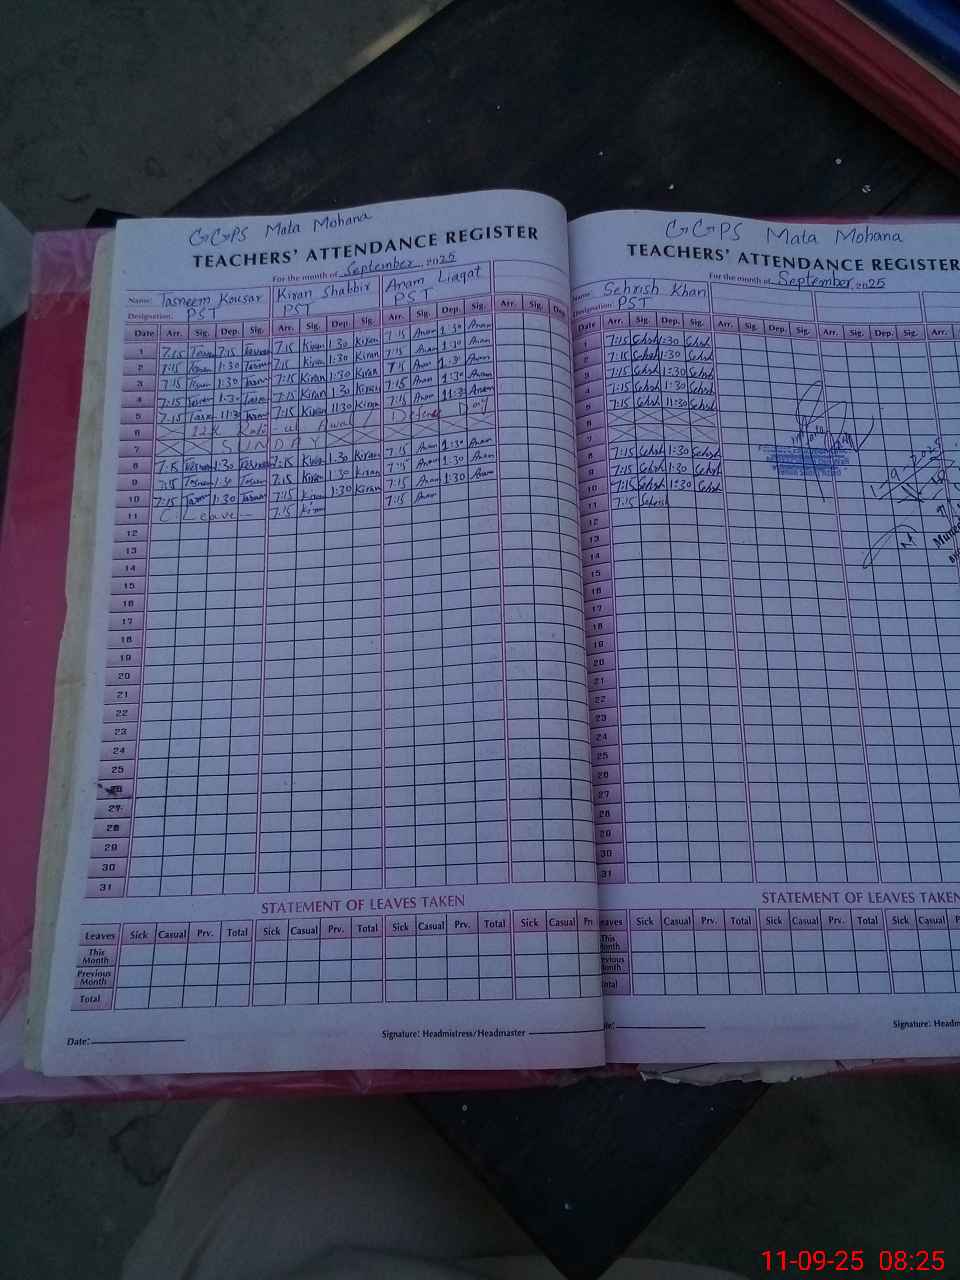 GGPS Mata Mohana
TEACHERS' ATTENDANCE REGISTER
For the month of September, 2025
Name: Tasneem Kousar Kiran Shabbir Anam Liaqat
Designation: PST PST PST
Date Arr. Sig. Dep. Sig. Arr. Sig. Dep. Sig. Arr. Sig. Dep. Sig. Arr. Sig. Dep.
1 7:15 7:15 Tasneem 7:15 Kiran 1:30 Kiran 7:15 Anam 1:30 Anam
2 7:15 1:30 7:15 Kiran 1:30 Kiran 7:15 Anam 1:30 Anam
3 7:15 1:30 7:15 Kiran 1:30 Kiran 7:15 Anam 1:30 Anam
4 7:15 1:30 7:15 Kiran 1:30 Kiran 7:15 Anam 1:30 Anam
5 7:15 11:30 7:15 Kiran 11:30 Kiran 7:15 Anam 11:30 Anam
6 12th Rabi-ul Awal / Defence Day
7 SUNDAY
8 7:15 1:30 7:15 Kiran 1:30 Kiran 7:15 Anam 1:30 Anam
9 7:15 1:30 7:15 Kiran 1:30 Kiran 7:15 Anam 1:30 Anam
10 7:15 1:30 7:15 Kiran 1:30 Kiran 7:15 Anam 1:30 Anam
11 C. Leave 7:15 Kiran 7:15 Anam
12
13
14
15
16
17
18
19
20
21
22
23
24
25
26
27
28
29
30
31
STATEMENT OF LEAVES TAKEN
Leaves Sick Casual Prv. Total Sick Casual Prv. Total Sick Casual Prv. Total Sick Casual
This Month
Previous Month
Total
Date: Signature: Headmistress/Headmaster
GGPS Mata Mohana
TEACHERS' ATTENDANCE REGISTER
For the month of September, 2025
Name: Sehrish Khan
Designation: PST
Arr. Sig. Dep. Sig. Arr. Sig. Dep. Sig. Arr. Sig. Dep. Sig. Arr.
1 7:15 Sehsh 1:30 Sehsh
2 7:15 Sehsh 1:30 Sehsh
3 7:15 Sehsh 1:30 Sehsh
4 7:15 Sehsh 1:30 Sehsh
5 7:15 Sehsh 11:30 Sehsh
6
7
8 7:15 Sehsh 1:30 Sehsh
9 7:15 Sehsh 1:30 Sehsh
10 7:15 Sehsh 1:30 Sehsh
11 7:15 Sehrish
12
13
14
15
16
17
18
19
20
21
22
23
24
25
26
27
28
29
30
31
STATEMENT OF LEAVES TAKEN
Sick Casual Prv. Total Sick Casual Prv. Total Sick Casual
Month
Month
Signature:
11-09-25 08:25